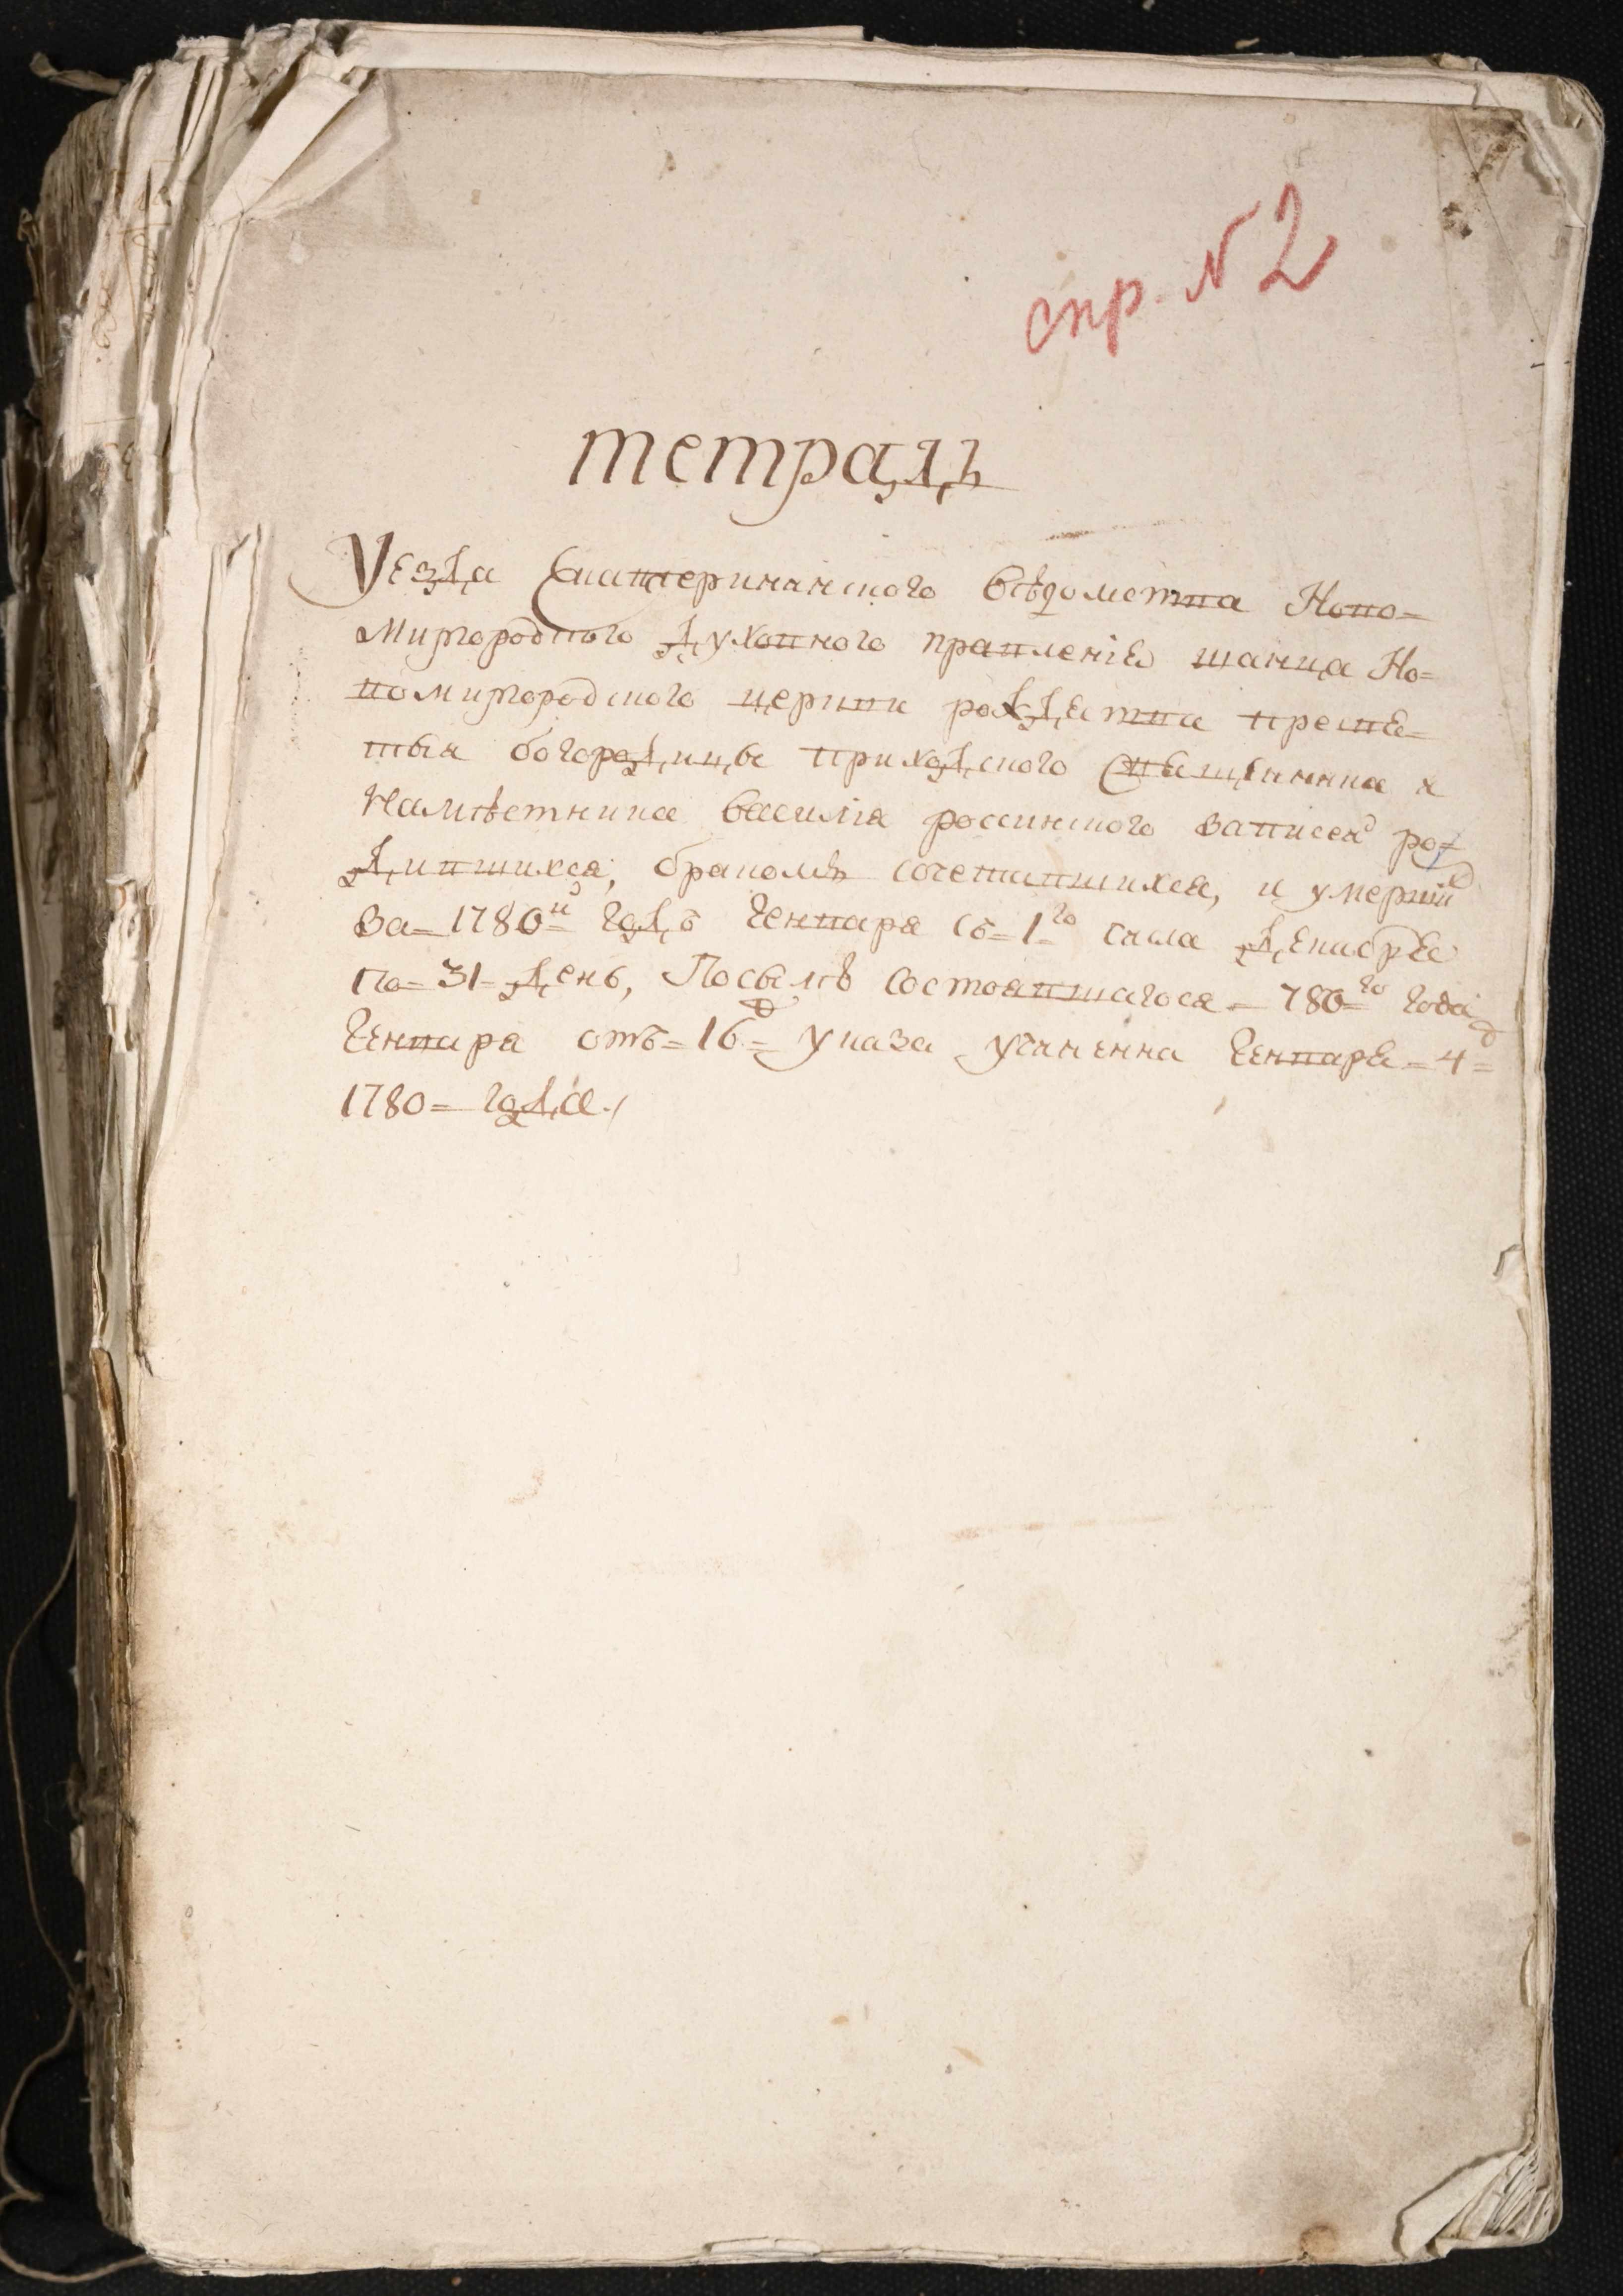 спр. № 2
тетрадь
Уезда Екатерининского вѣдомства Ново=
миргородского духовного правленія шанца Но=
вомиргородского церкви рождества пресвя=
тыя богородицы приходского священника и
Намѣстника василія россинского записей ро=
дившихся, бракомъ сочетавшихся, и умерших
За=1780й= годъ генваря съ=1=го числа декабря
По=31=день, Посылѣ состоявшагося=780=го года
Генваря отъ=16д= указа учиненна Генваря=4д=
1780= года./